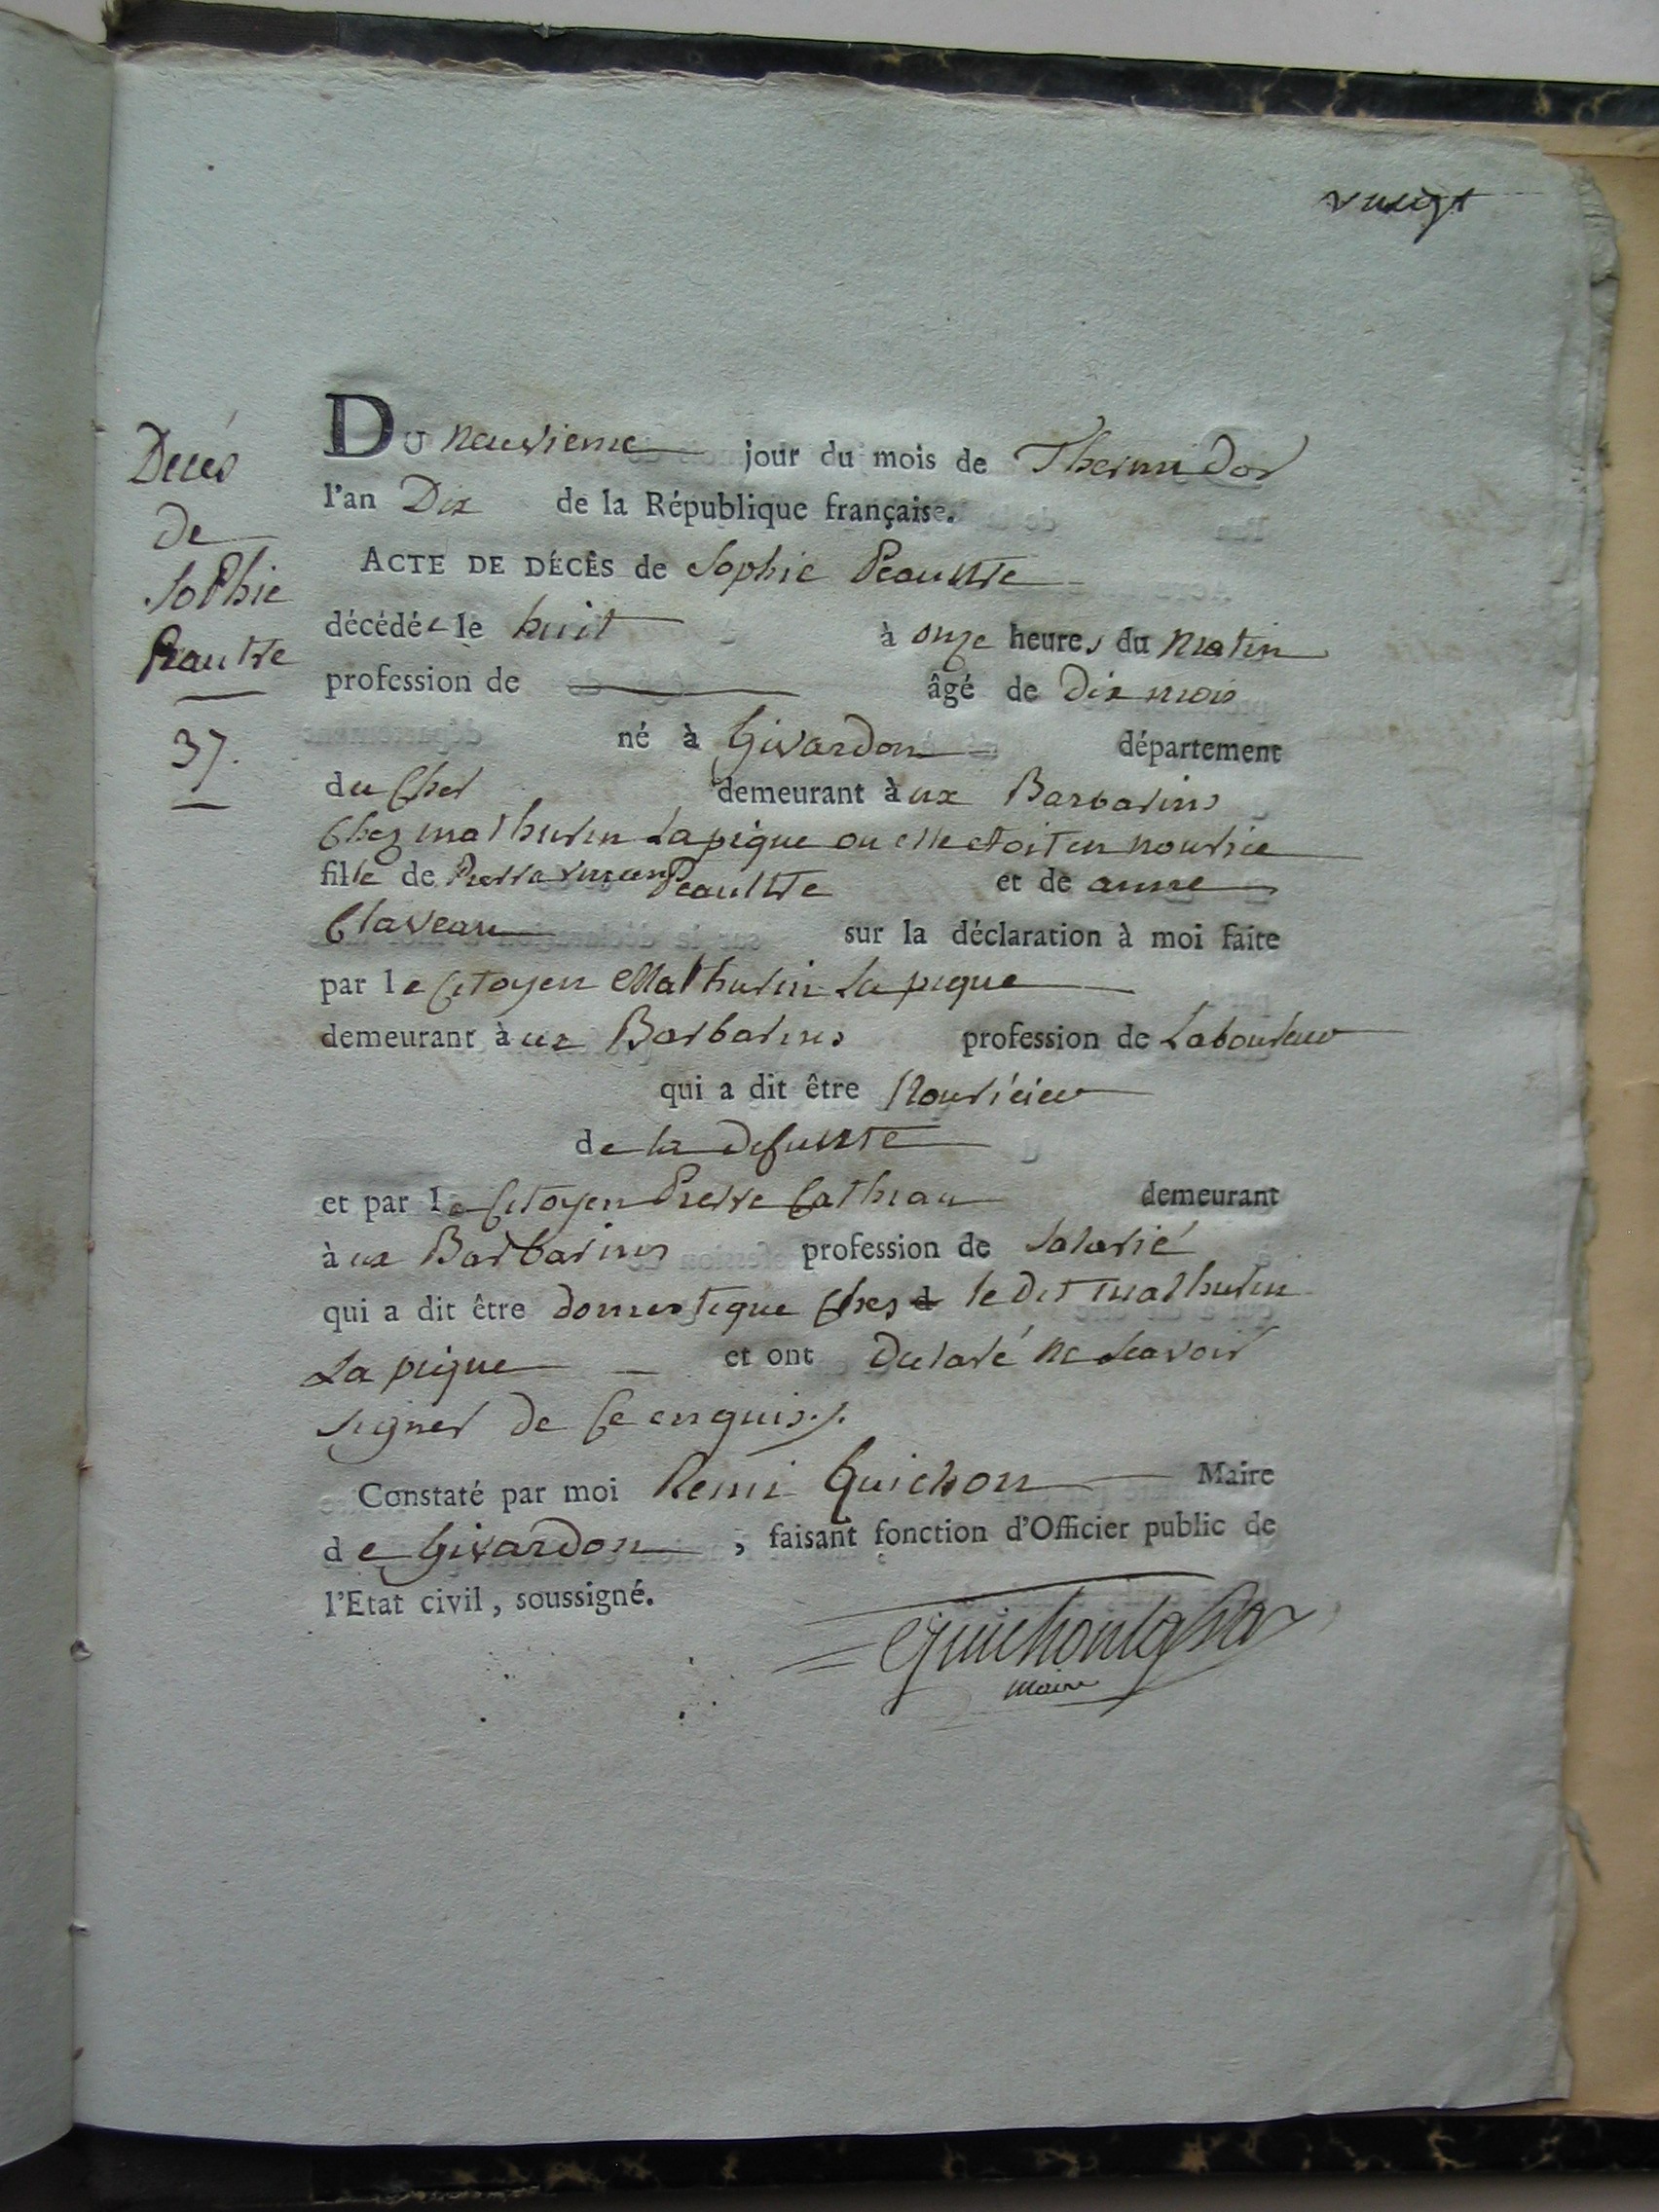 vingt
Décés
de
Sophie
Peautre
37.
DU neuvieme jour du mois de Thermidor
l'an Dix de la République française.
ACTE DE DÉCÈS de Sophie Peautre
décédée le huit à onze heures du matin
profession de âgé de dix mois
né à Givardon département
du Cher demeurant àux Barbarins
Chez mathurin Lapique ou elle etoit en nourice
fille de Pierre Peaultre et de anne
Claveau sur la déclaration à moi faite
par le Citoyen Mathurin Lapique
demeurant àux Barbarins profession de Laboureur
qui a dit être Nouricier
de la defunte
et par le Citoyen Pierre Cathiau demeurant
àux Barbarins profession de Salarié
qui a dit être domestique Ches le Dit mathurin
La pique et ont Declaré ne Scavoir
Signer de Ce enquis./.
Constaté par moi Remi Guichon Maire
de Givardon, faisant fonction d'Officier public de
l'Etat civil, soussigné.
Guichon
maire